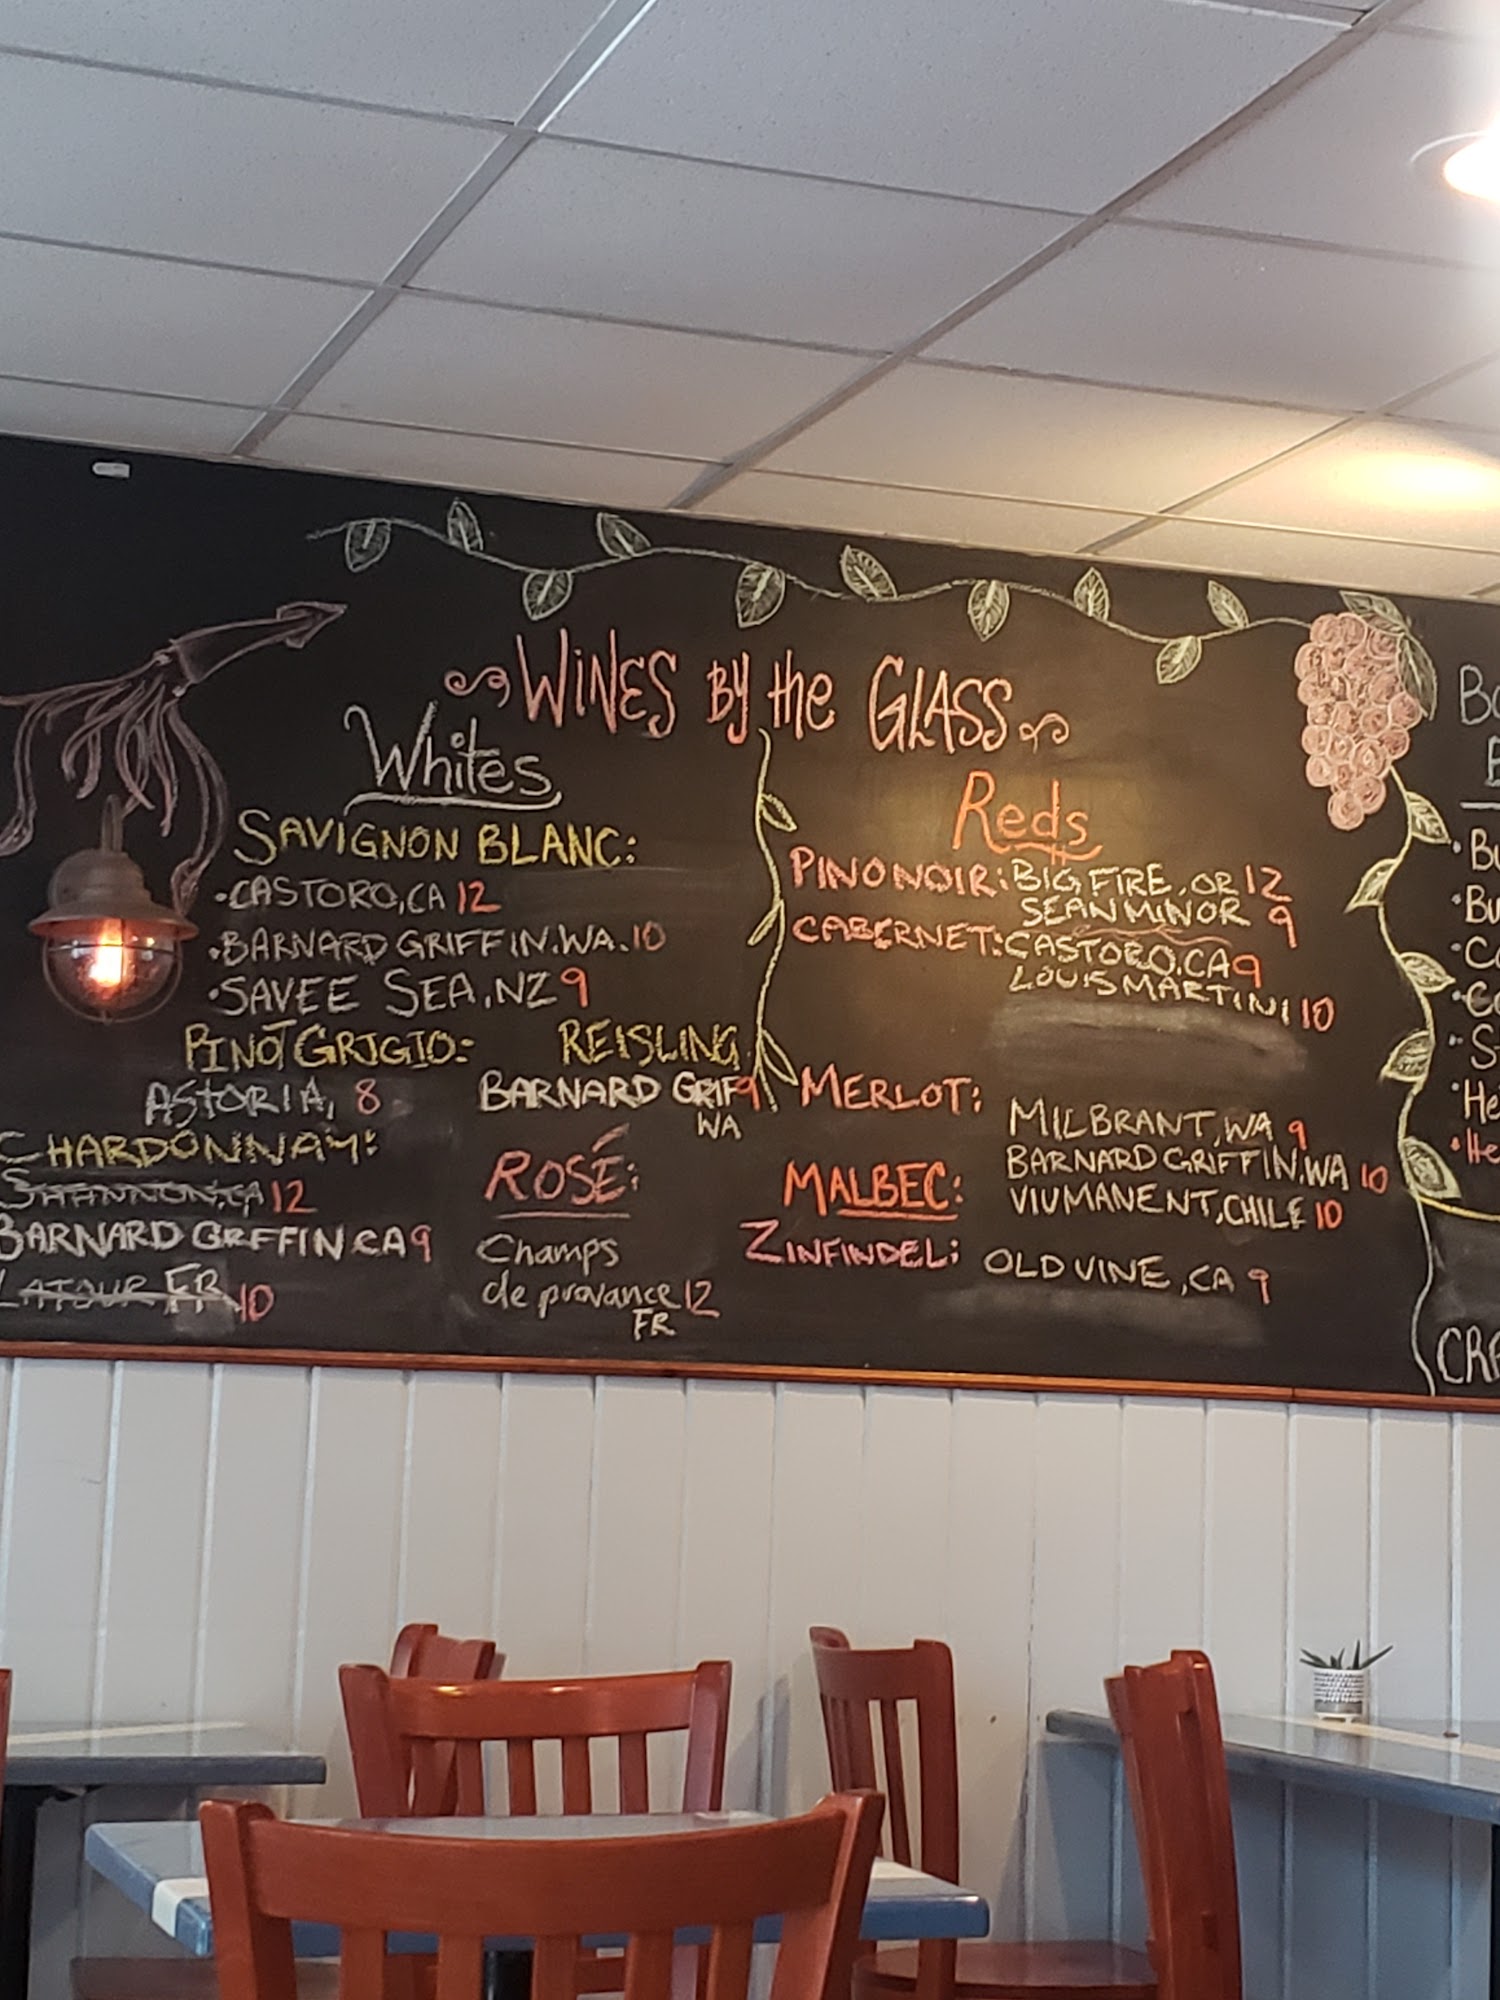 WINES BY the GLASS
Whites
SAVIGNON BLANC:
·CASTORO,CA 12
·BARNARD GRIFFIN.WA.10
·SAVEE SEA,NZ 9
PINOT GRIGIO:
ASTORIA, 8
REISLING
BARNARD GRIF 9
WA
CHARDONNAY:
SHANNON,CA 12
BARNARD GRFFIN CA 9
LATOUR FR 10
ROSÉ:
Champs
de provance 12
FR
Reds
PINO NOIR: BIG FIRE, OR 12
SEAN MINOR 9
CABERNET: CASTORO,CA 9
LOUIS MARTINI 10
MERLOT:
MILBRANT,WA 9
BARNARD GRIFFIN,WA 10
MALBEC:
VIUMANENT,CHILE 10
ZINFINDEL: OLD VINE ,CA 9